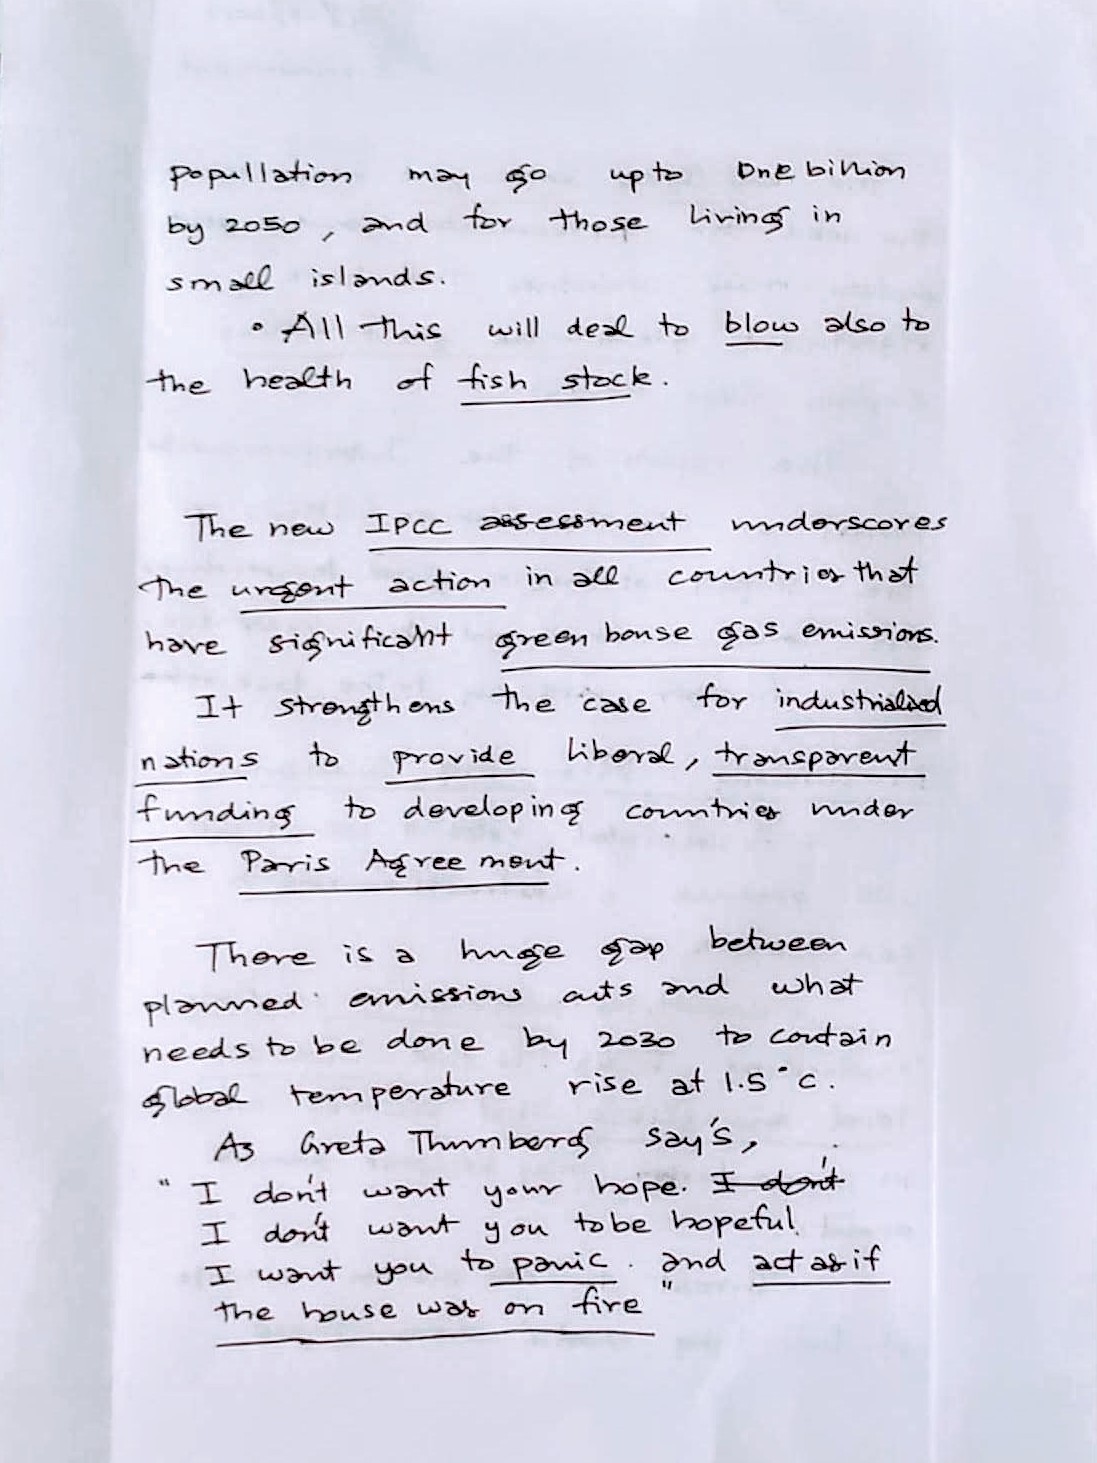 popullation may go upto one billion
by 2050, and for those living in
small islands.
• All this will deal to blow also to
the health of fish stock.
The new IPCC assessment underscores
the urgent action in all countries that
have significant green house gas emissions.
It strengthens the case for industrialised
nations to provide liberal, transparent
funding to developing countries under
the Paris Agreement.
There is a huge gap between
planned emissions cuts and what
needs to be done by 2030 to contain
global temperature rise at 1.5°c.
As Greta Thunberg say's,
" I don't want your hope. I don't
I don't want you to be hopeful
I want you to panic. and act as if
the house was on fire "